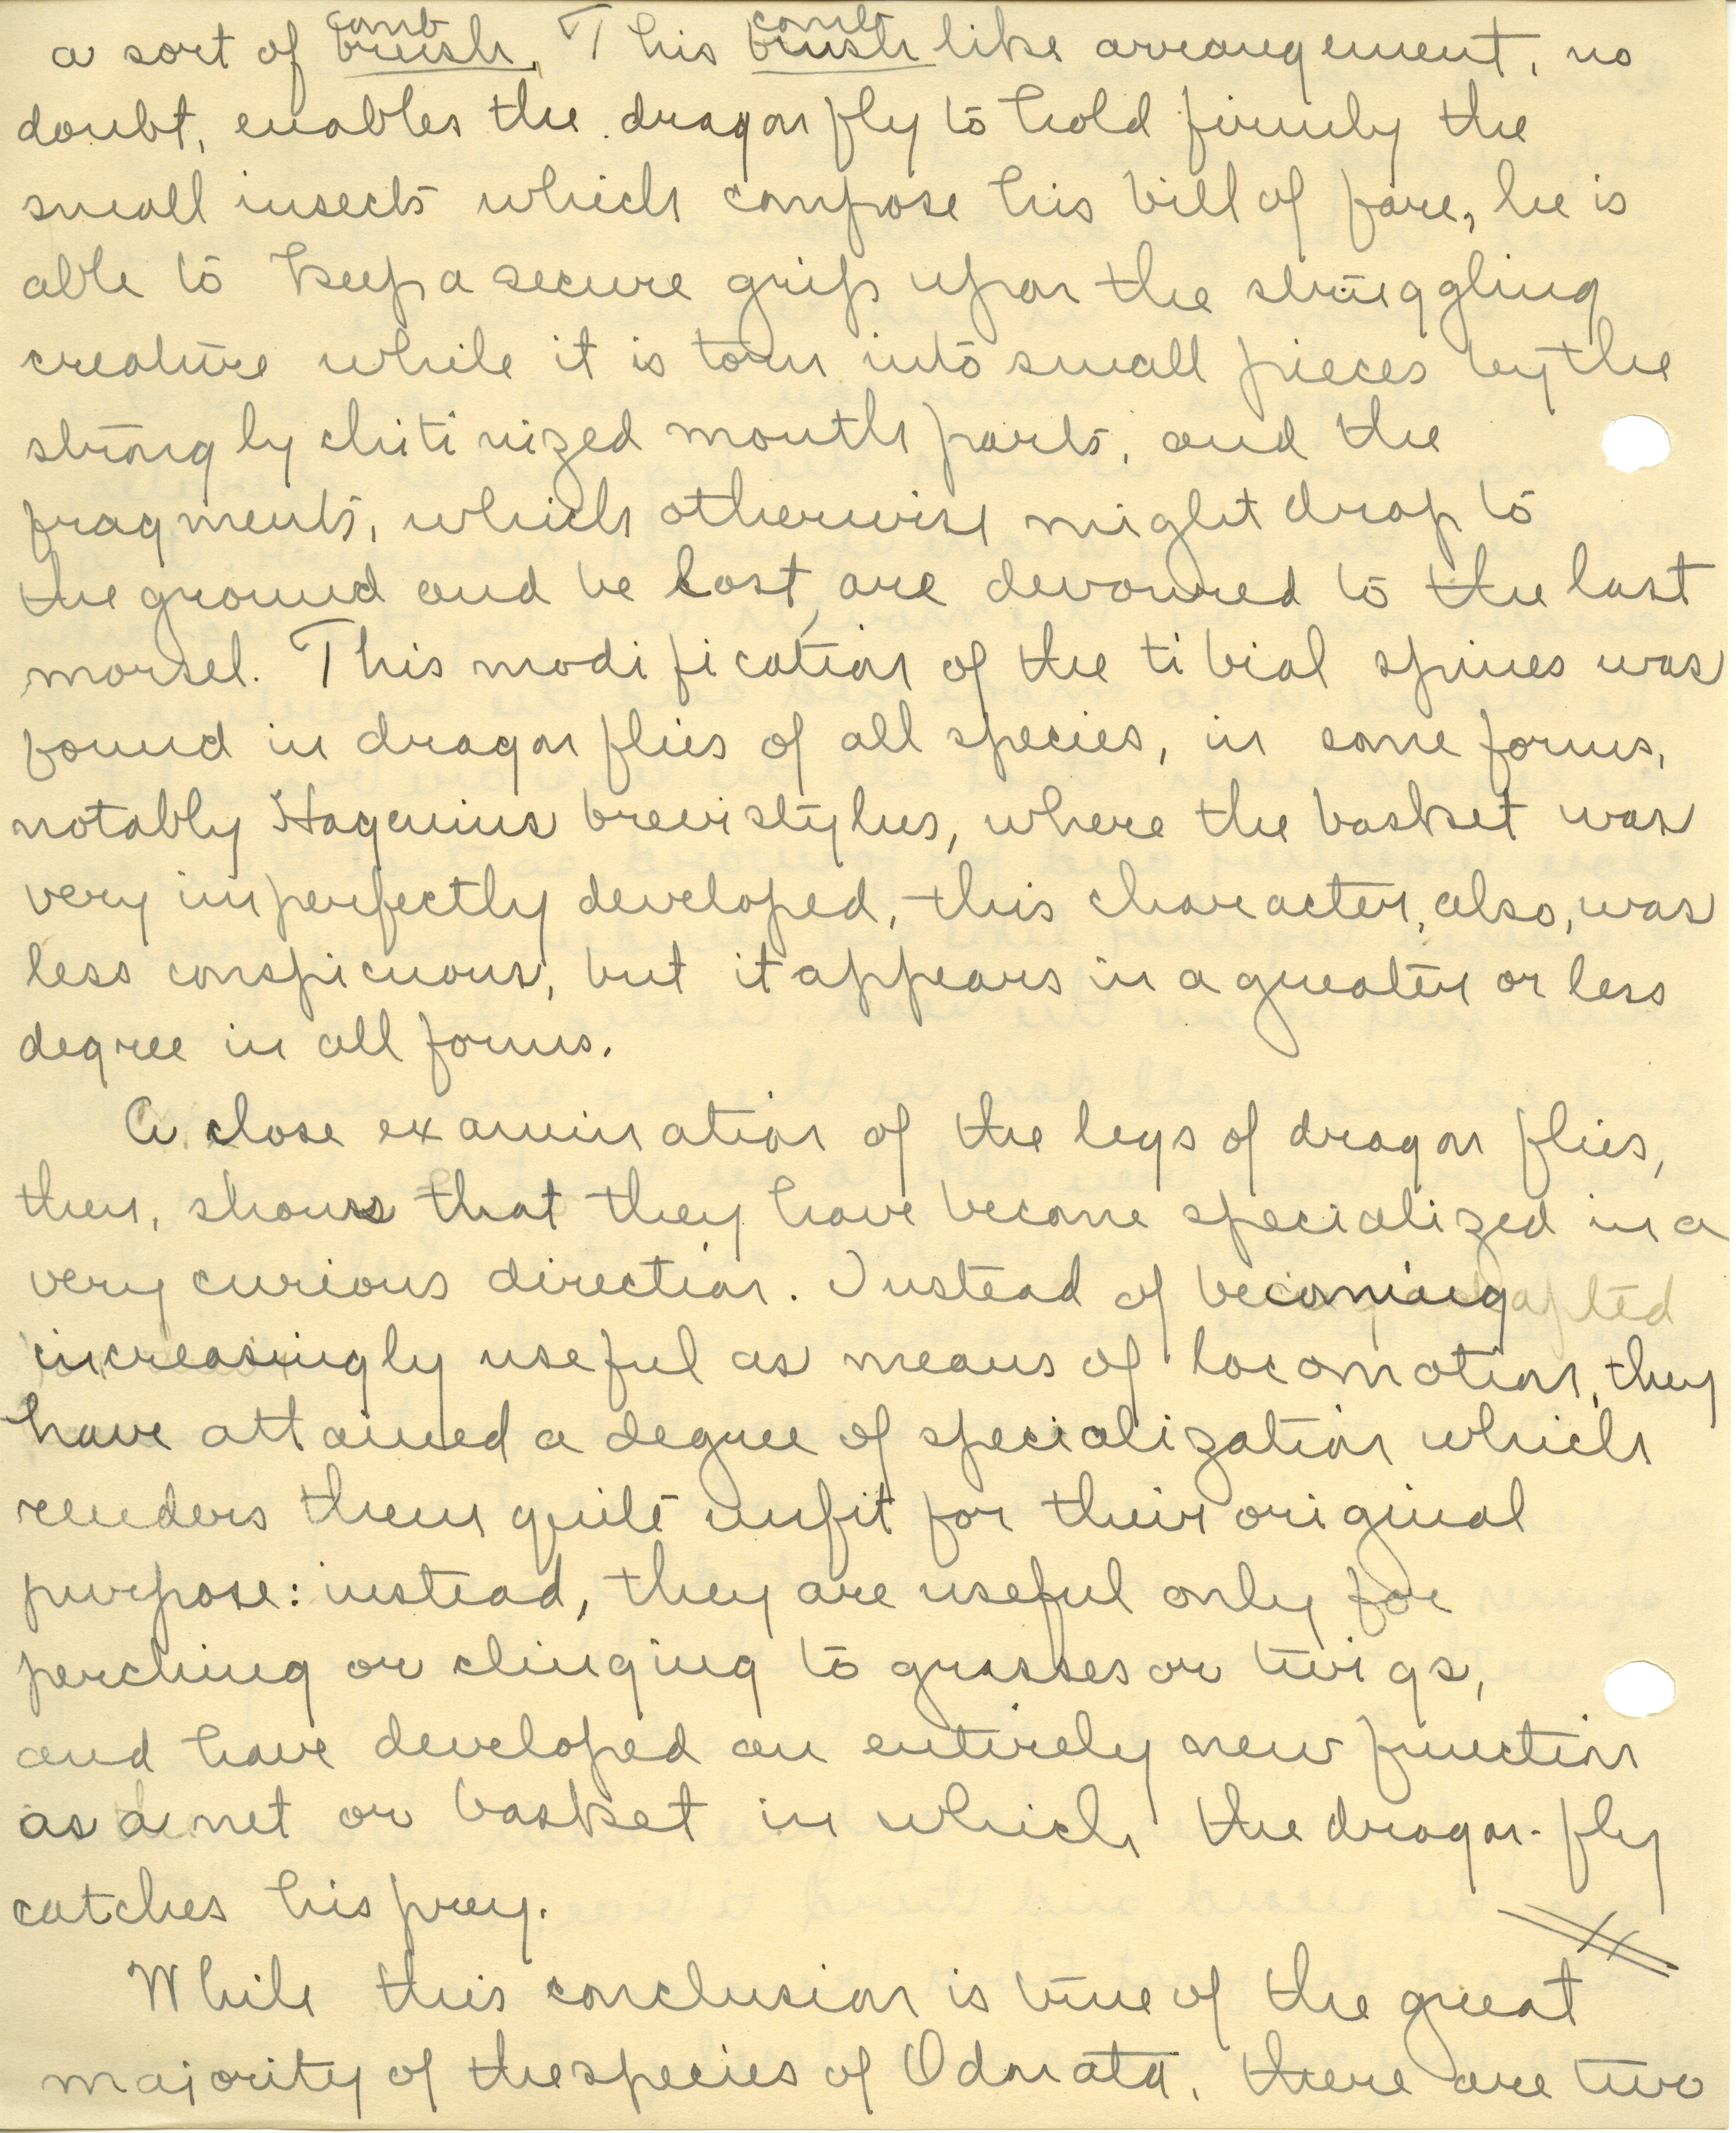 comb comb
a sort of brush. This brush like arrangement, no
doubt, enables the dragon fly to hold firmly the
small insects which compose his bill of fare, he is
able to keep a secure grip upon the struggling
creature while it is torn into small pieces by the
strongly chitinized mouth parts, and the
fragments, which otherwise might drop to
the ground and be lost, are devoured to the last
morsel. This modification of the tibial spines was
found in dragon flies of all species, in some forms,
notably Hagenius brevistylus, where the basket was
very imperfectly developed, this character, also, was
less conspicuous, but it appears in a greater or less
degree in all forms.
A close examination of the legs of dragon flies,
then, shows that they have become specialized in a
very curious direction. Instead of becoming
increasingly useful as means of locomotion, they
have attained a degree of specialization which
renders them quite unfit for their original
purpose: instead, they are useful only for
perching or clinging to grasses or twigs,
and have developed an entirely new function
as a net or basket in which the dragon-fly
catches his prey.
While this conclusion is true of the great
majority of the species of Odonata, there are two